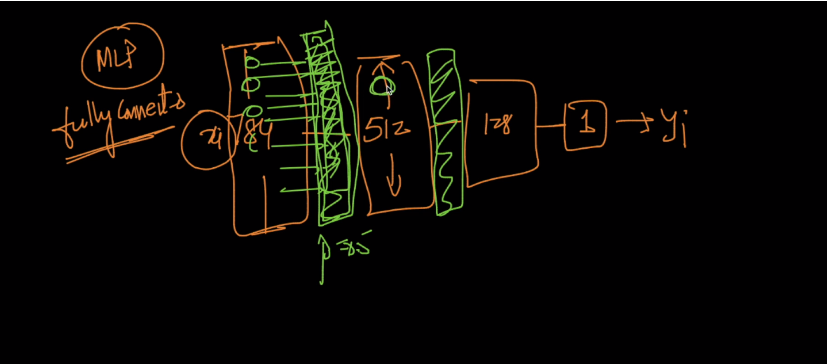 MLP
fully connected
xi
784
512
128
1
→ yi
p = 0.5